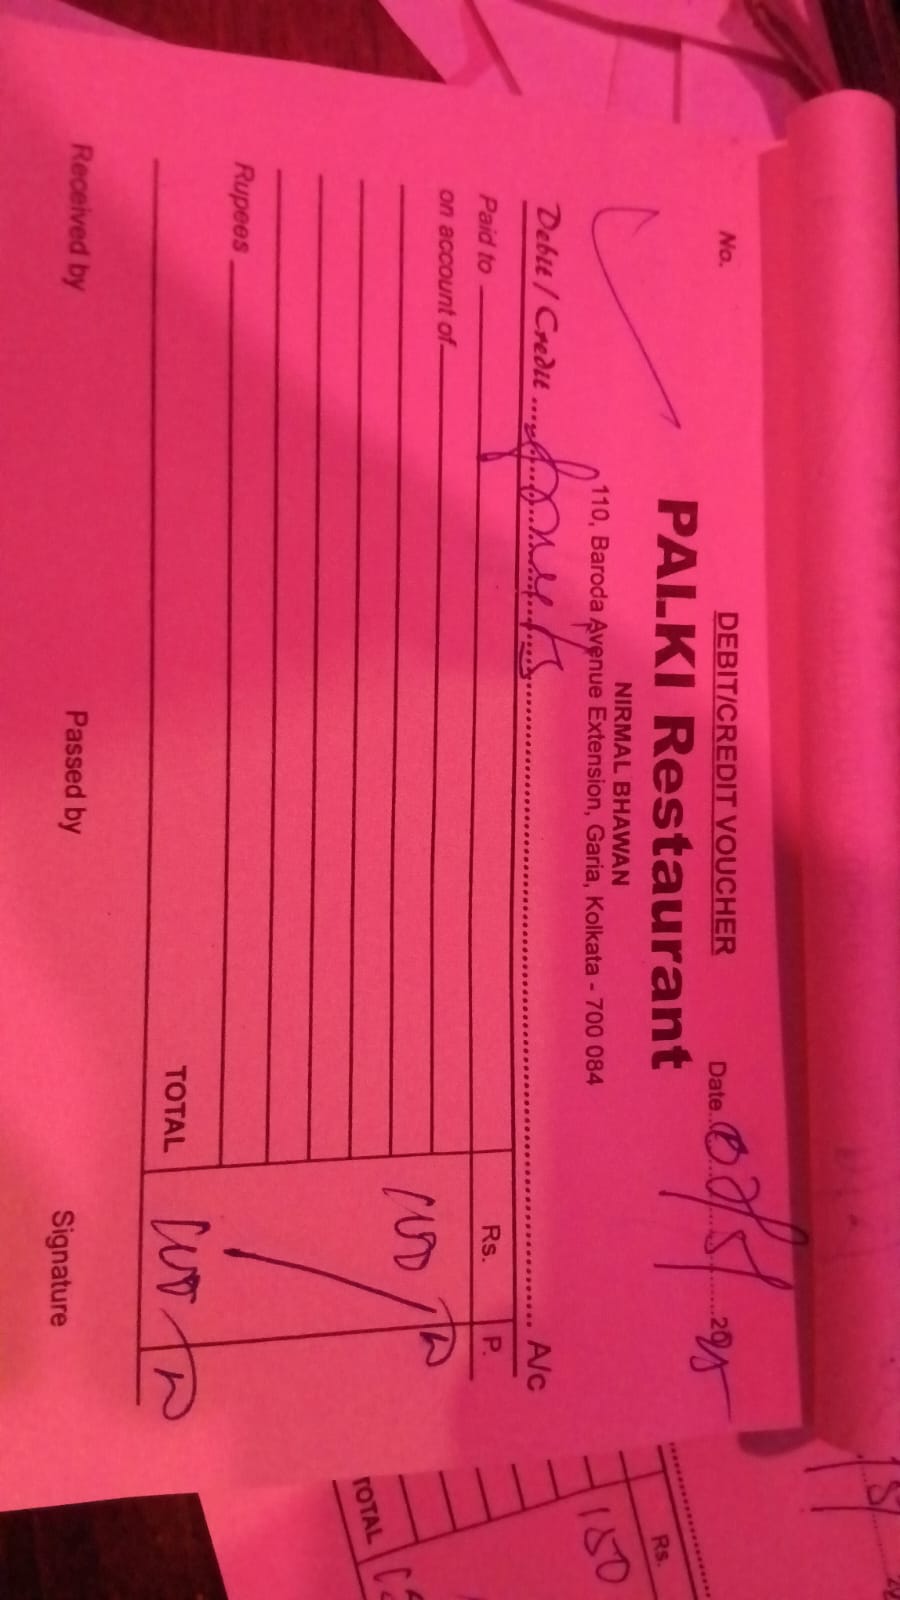 DEBIT/CREDIT VOUCHER
No.
Date
20
PALKI Restaurant
NIRMAL BHAWAN
110, Baroda Avenue Extension, Garia, Kolkata - 700 084
Debit / Credit A/c
Paid to Rs. P.
on account of
Rupees
TOTAL
Received by Passed by Signature
Rs.
150
TOTAL